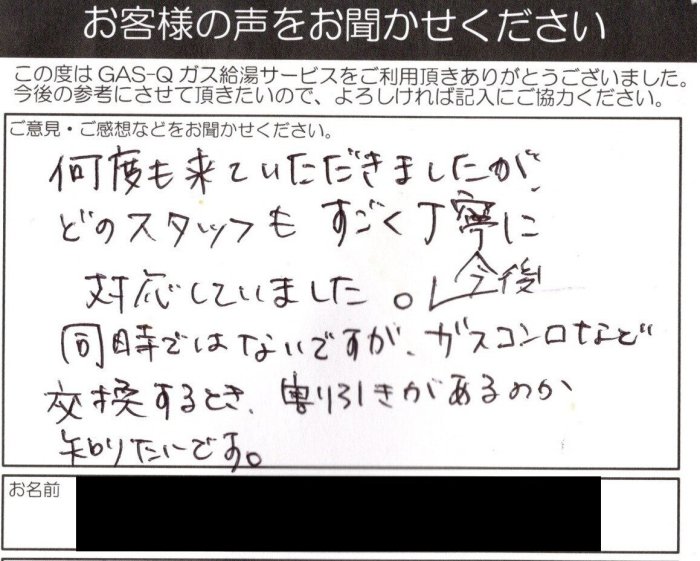 お客様の声をお聞かせください
この度はGAS-Qガス給湯サービスをご利用頂きありがとうございました。
今後の参考にさせて頂きたいので、よろしければ記入にご協力ください。
ご意見・ご感想などをお聞かせください。
何度も来ていただきましたが、
どのスタッフもすごく丁寧に
対応していました。今後
同時ではないですが、ガスコンロなど
交換するとき、割り引きがあるのか
知りたいです。
お名前